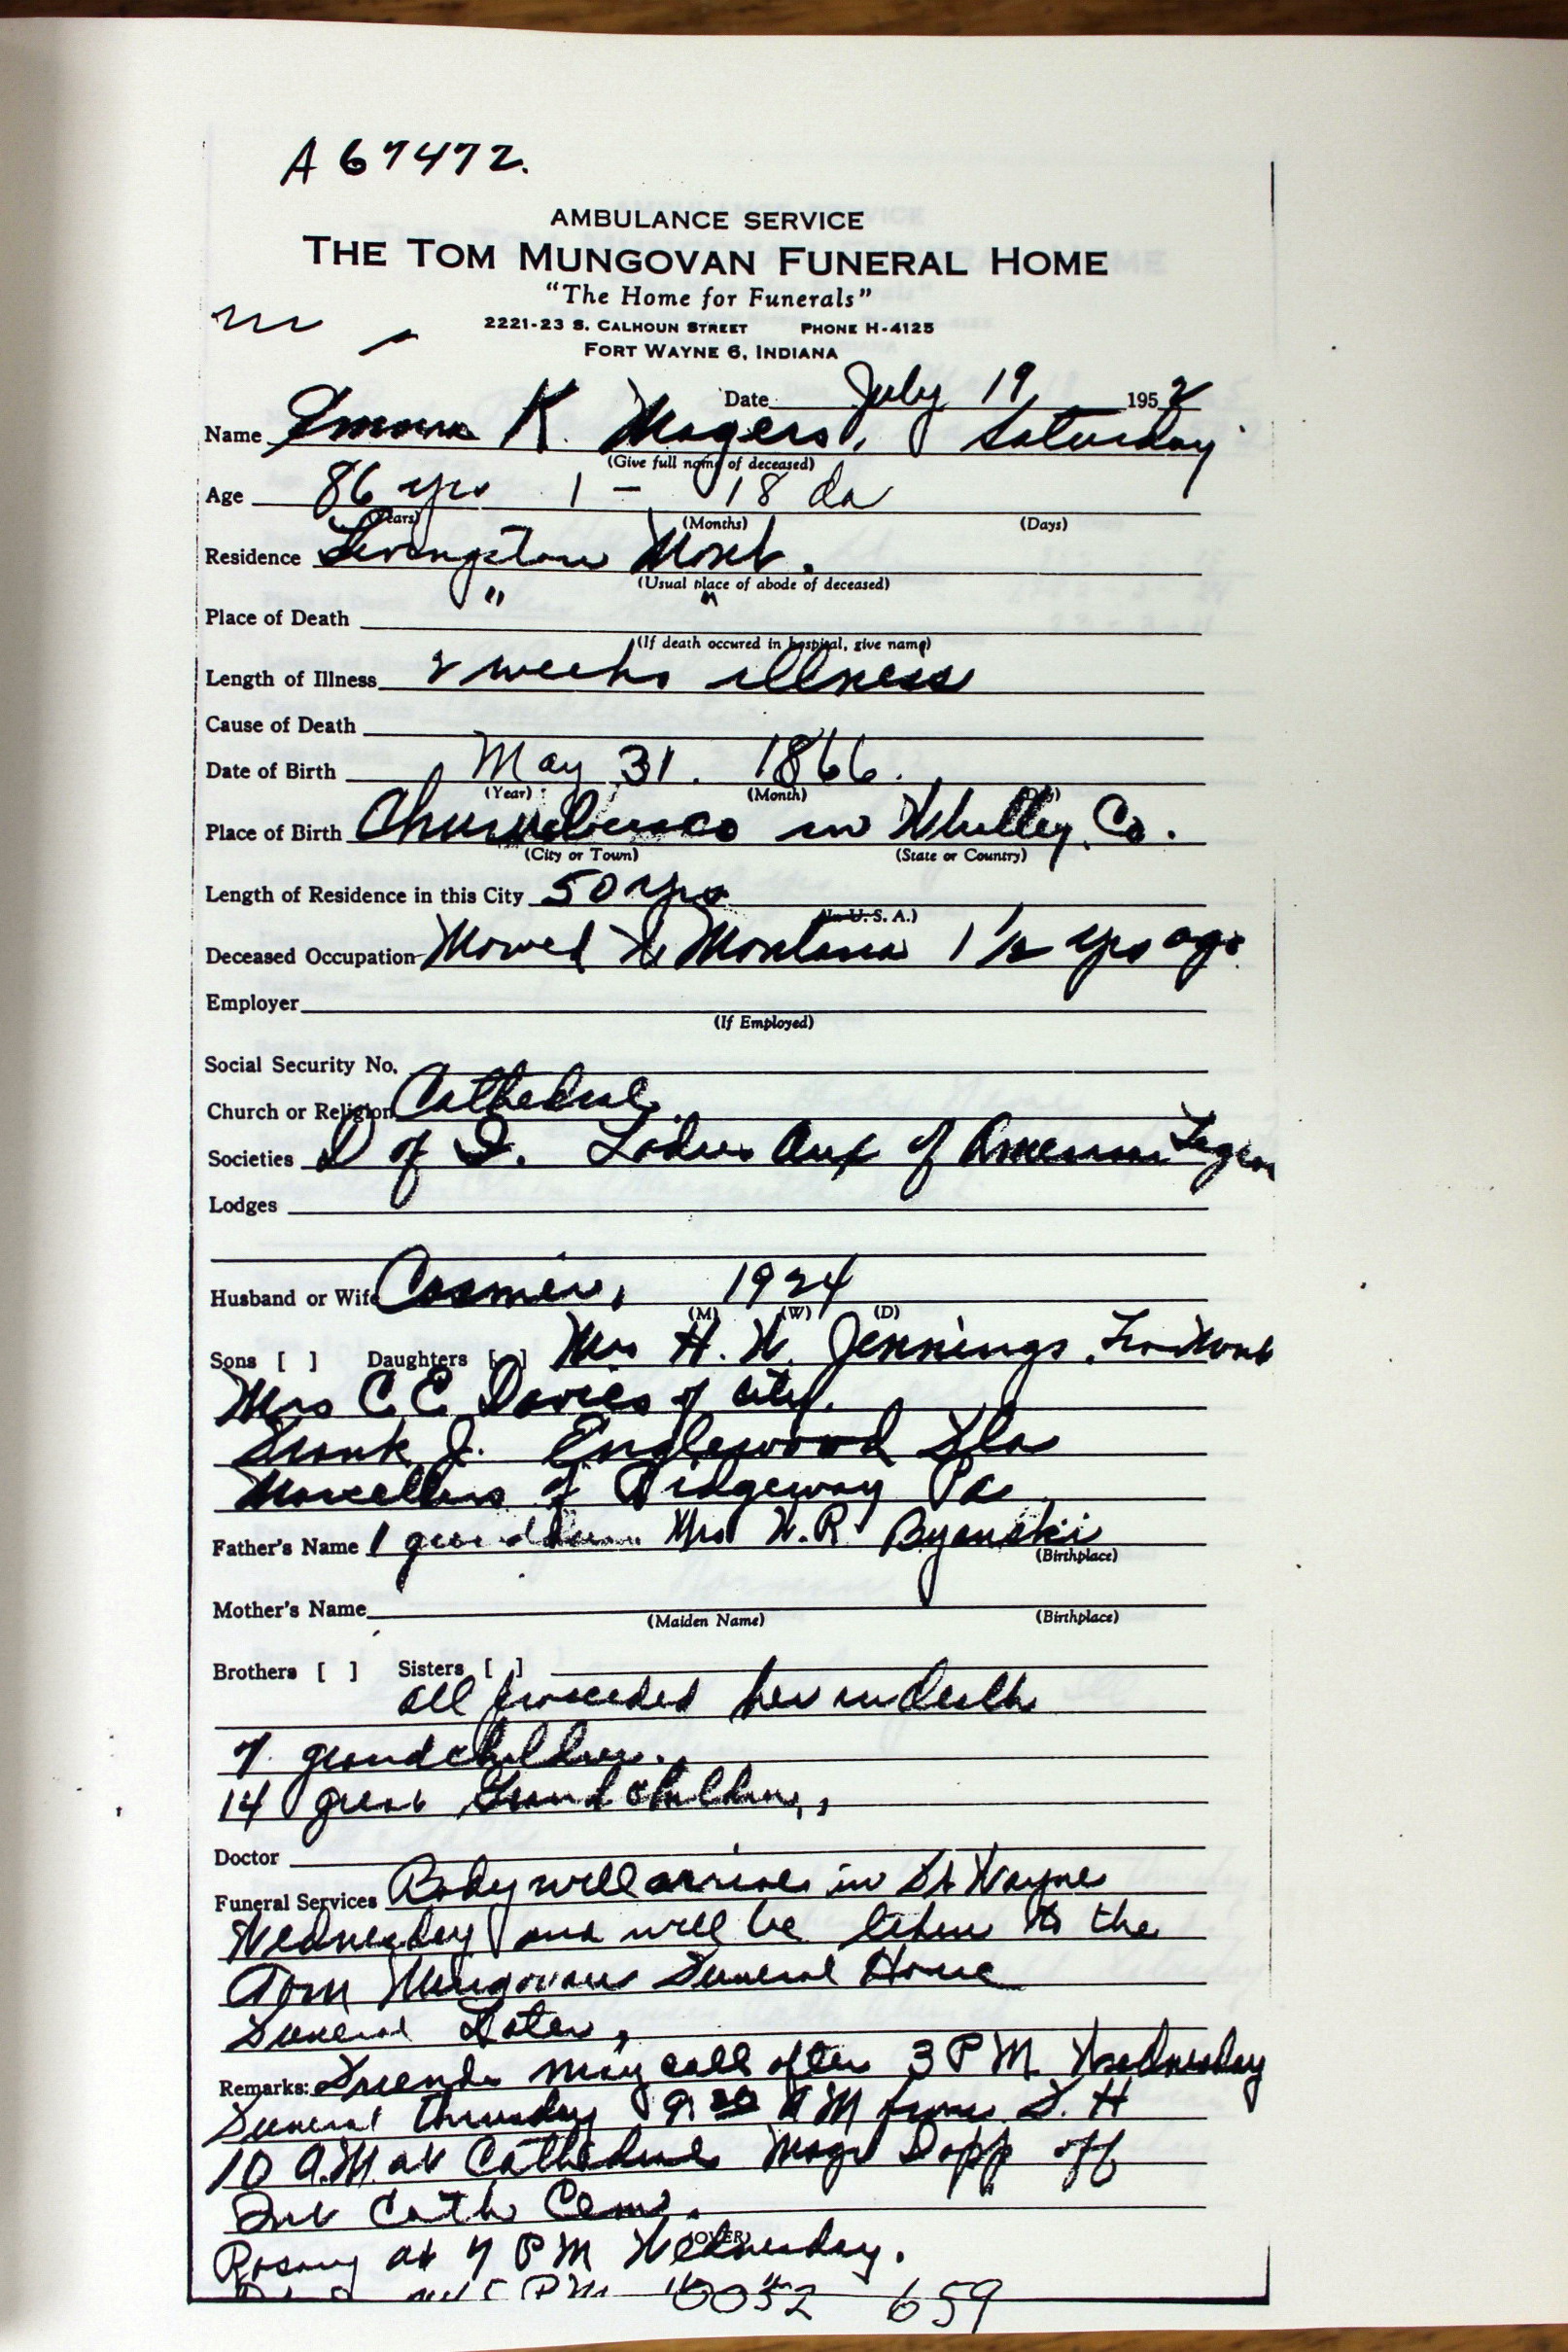 A 67472.
AMBULANCE SERVICE
THE TOM MUNGOVAN FUNERAL HOME
"The Home for Funerals"
2221-23 S. CALHOUN STREET PHONE H-4125
FORT WAYNE 6, INDIANA
Date July 19, 1952
Name Emma K. Magers, Saturday
(Give full name of deceased)
Age 86 yrs 1 - 18 da
(Years) (Months) (Days)
Residence Livingston Mont.
(Usual place of abode of deceased)
Place of Death " "
(If death occured in hospital, give name)
Length of Illness 2 weeks illness
Cause of Death
Date of Birth May 31. 1866.
(Year) (Month)
Place of Birth Churubusco in Whitley Co.
(City or Town) (State or Country)
Length of Residence in this City 50 yrs
(In U. S. A.)
Deceased Occupation Moved to Montana 1 1/2 yrs ago
Employer
(If Employed)
Social Security No.
Church or Religion Cathedral
Societies D of I. Ladies Aux of American Legion
Lodges
Husband or Wife 1924
(M) (W) (D)
Sons [ ] Daughters [ ] Mrs H. W. Jennings,
Mrs C E Davies of city.
Frank J. Englewood Fla
Marcellus of Ridgeway Pa
Father's Name 1 Mrs W. R. Byanski
(Birthplace)
Mother's Name
(Maiden Name) (Birthplace)
Brothers [ ] Sisters [ ]
all preceded her in death
7 grandchildren.
14 great Grandchildren,
Doctor
Funeral Services Body will arrive in Ft Wayne
Wednesday and will be taken to the
Tom Mungovan Funeral Home
Funeral Later,
Remarks: Friends may call after 3 P M. Wednesday
Funeral Thursday 9:30 A M from F. H
10 A.M. at Cathedral Msgr Dapp off
Int Cath Cem.
(OVER)
Rosary at 7 P M Wednesday.
5 P M 659